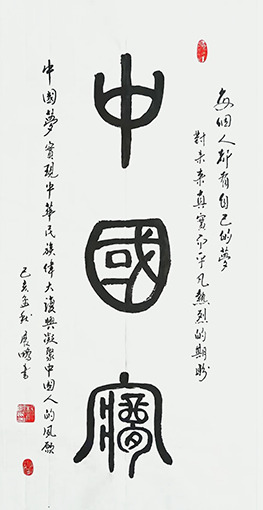 每個人都有自己的夢
對未來真實而平凡熱烈的期盼
中國夢
中國夢實現中華民族偉大復興凝聚中國人的夙願
己亥孟秋書